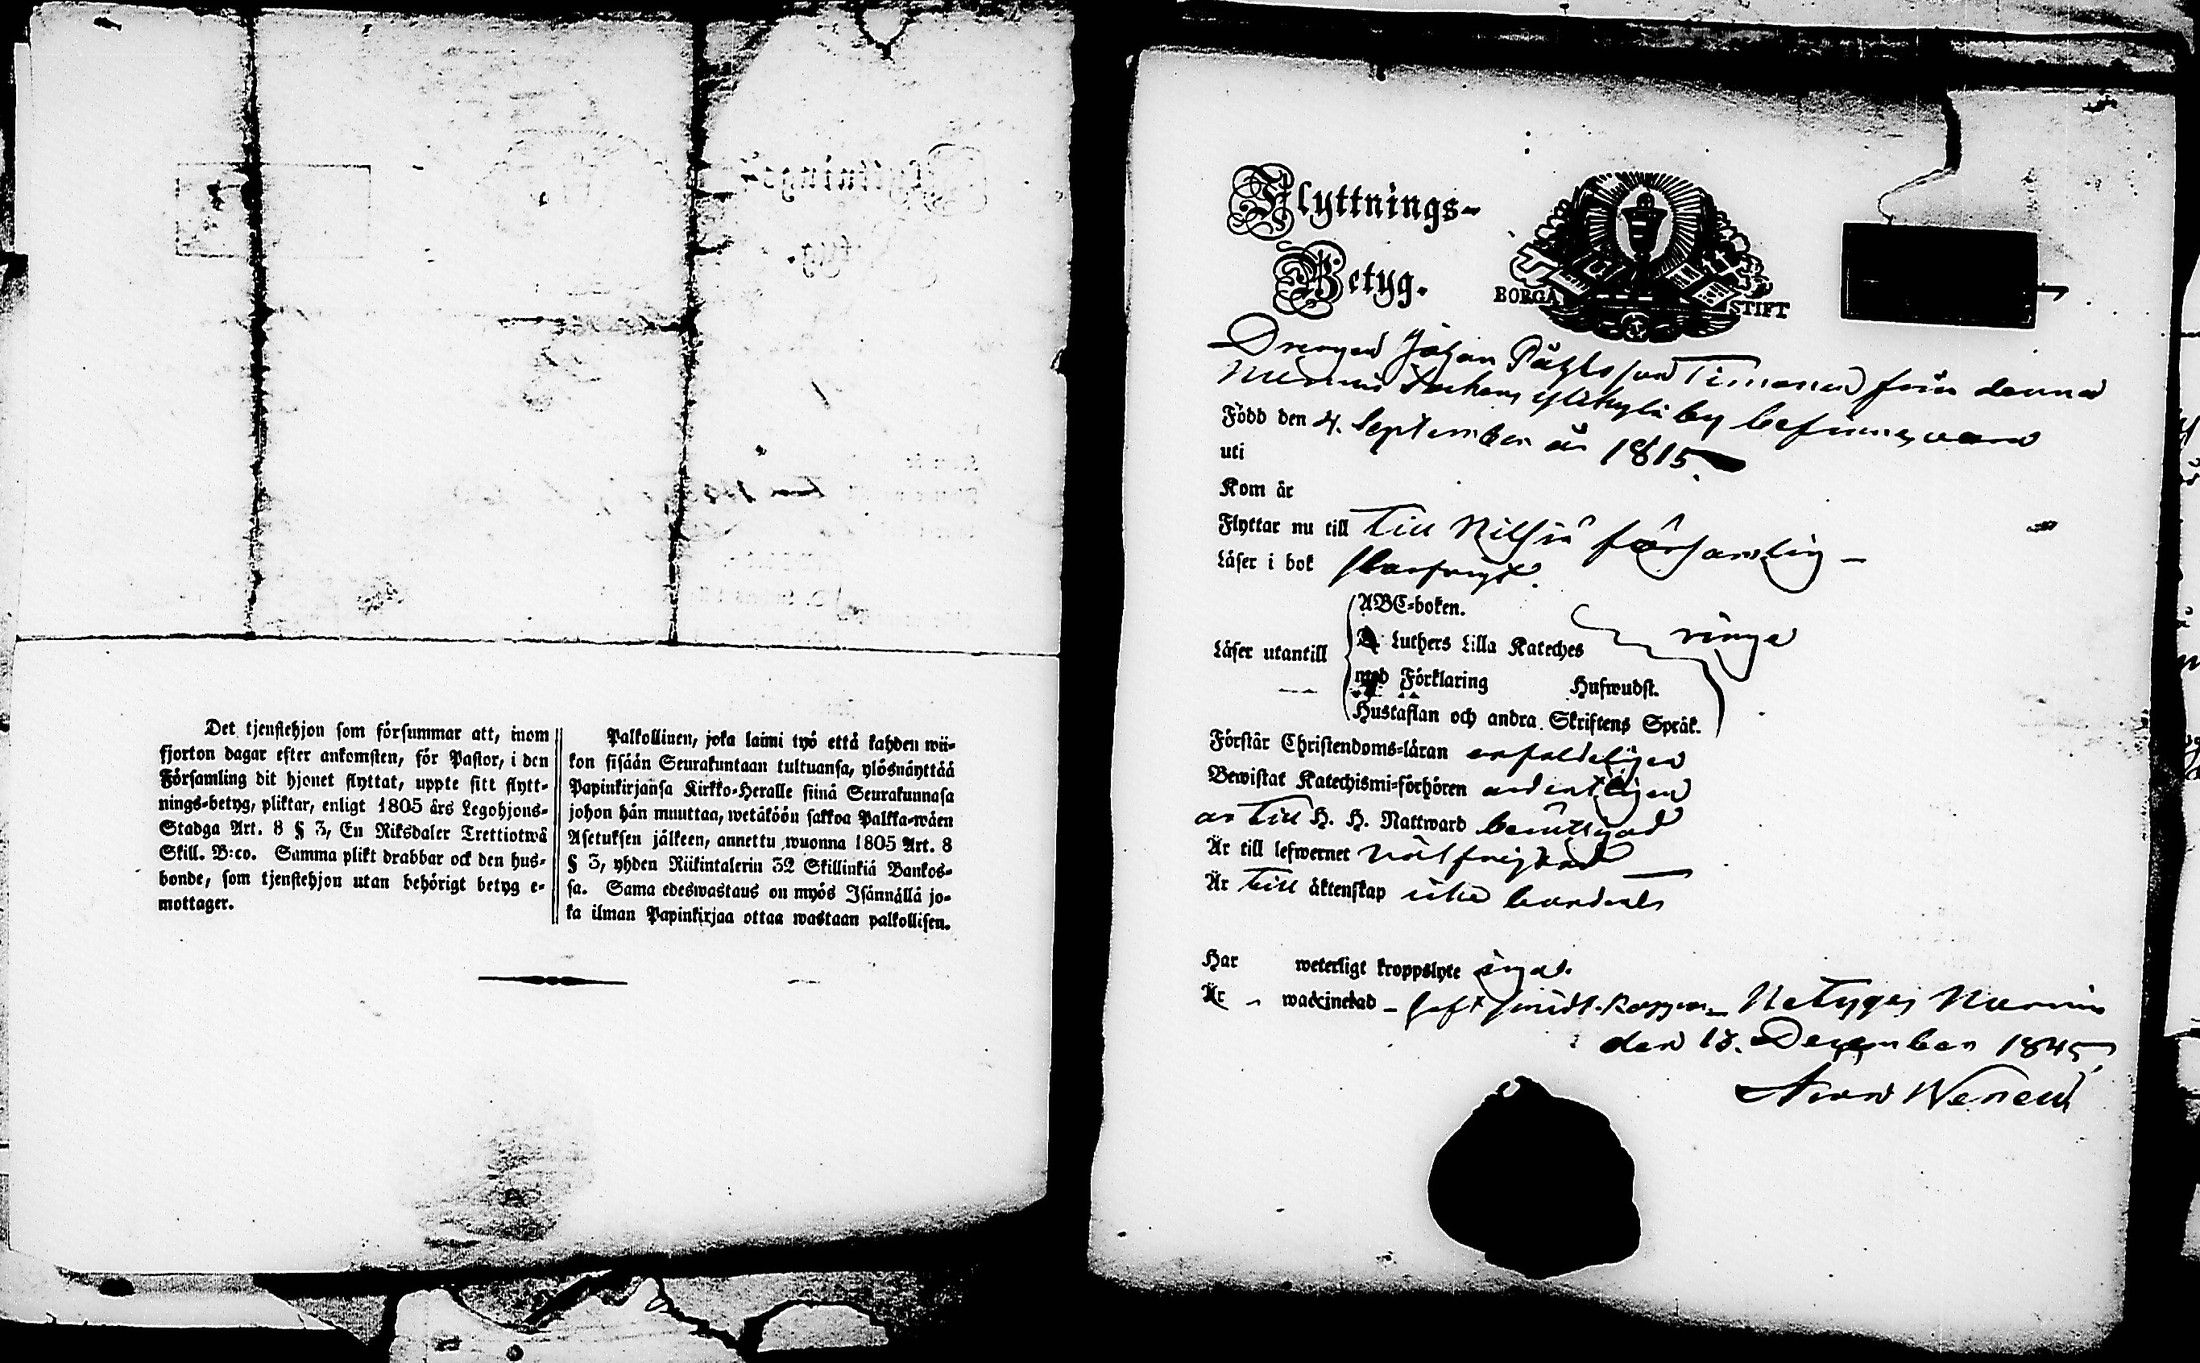 Det tjenstehjon som försummar att, inom
fjorton dagar efter ankomsten, för Pastor, i den
Församling dit hjonet flyttat, uppte sitt flytt-
nings-betyg, pliktar, enligt 1805 års Legohjons-
Stadga Art. 8 § 3, En Riksdaler Trettiotwå
Skill. B:co. Samma plikt drabbar ock den hus-
bonde, som tjenstehjon utan behörigt betyg e-
mottager.
Palkollinen, joka laimi lyö että kahden wii-
kon sisään Seurakuntaan tultuansa, ylösnäyttää
Papinkirjansa Kirkko-Heralle siinä Seurakunnasa
johon hän muuttaa, wetäköön sakkoa Palkka-wäen
Asetuksen jälkeen, annettu wuonna 1805 Art. 8
§ 3, yhden Riikintalerin 32 Skillinkiä Bankos-
sa. Sama edeswastaus on myös Isännällä jo-
ka ilman Papinkirjaa ottaa wastaan palkollisen.
Flyttnings-
Betyg.
BORGÅ STIFT
Drengen Johan Påhlsson Timonen från denna
Nurmis by befinnes vara
Född den 4. September år 1815.
uti
Kom år
Flyttar nu till Till Nilsiä församling –
Läser i bok
ABC-boken.
Läser utantill D. Luthers Lilla Kateches ringa
med Förklaring Hufwudst.
Hustaflan och andra Skriftens Språk.
Förstår Christendoms-läran enfaldeligen
Bewistat Katechismi-förhören ordentligen
är Till H. H. Nattward berättigad
Är till lefwernet wälfrejdad
Är till äktenskap icke bunden
Har weterligt kroppslyte inga.
Är wackinerad – haft Nurmis
den 13. December 1845